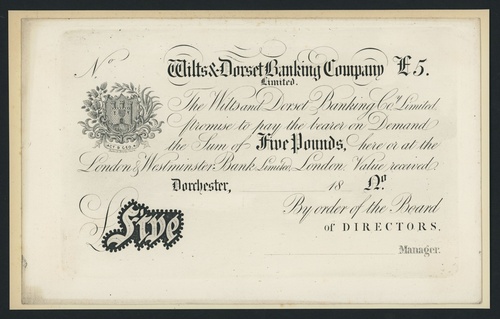 No Wilts & Dorset Banking Company £5.
Limited.
The Wilts and Dorset Banking Coy. Limited,
promise to pay the bearer on Demand
the Sum of Five Pounds, here or at the
London & Westminster Bank Limited, London. Value received.
Dorchester, 18 No
By order of the Board
of DIRECTORS.
£ Five
Manager.